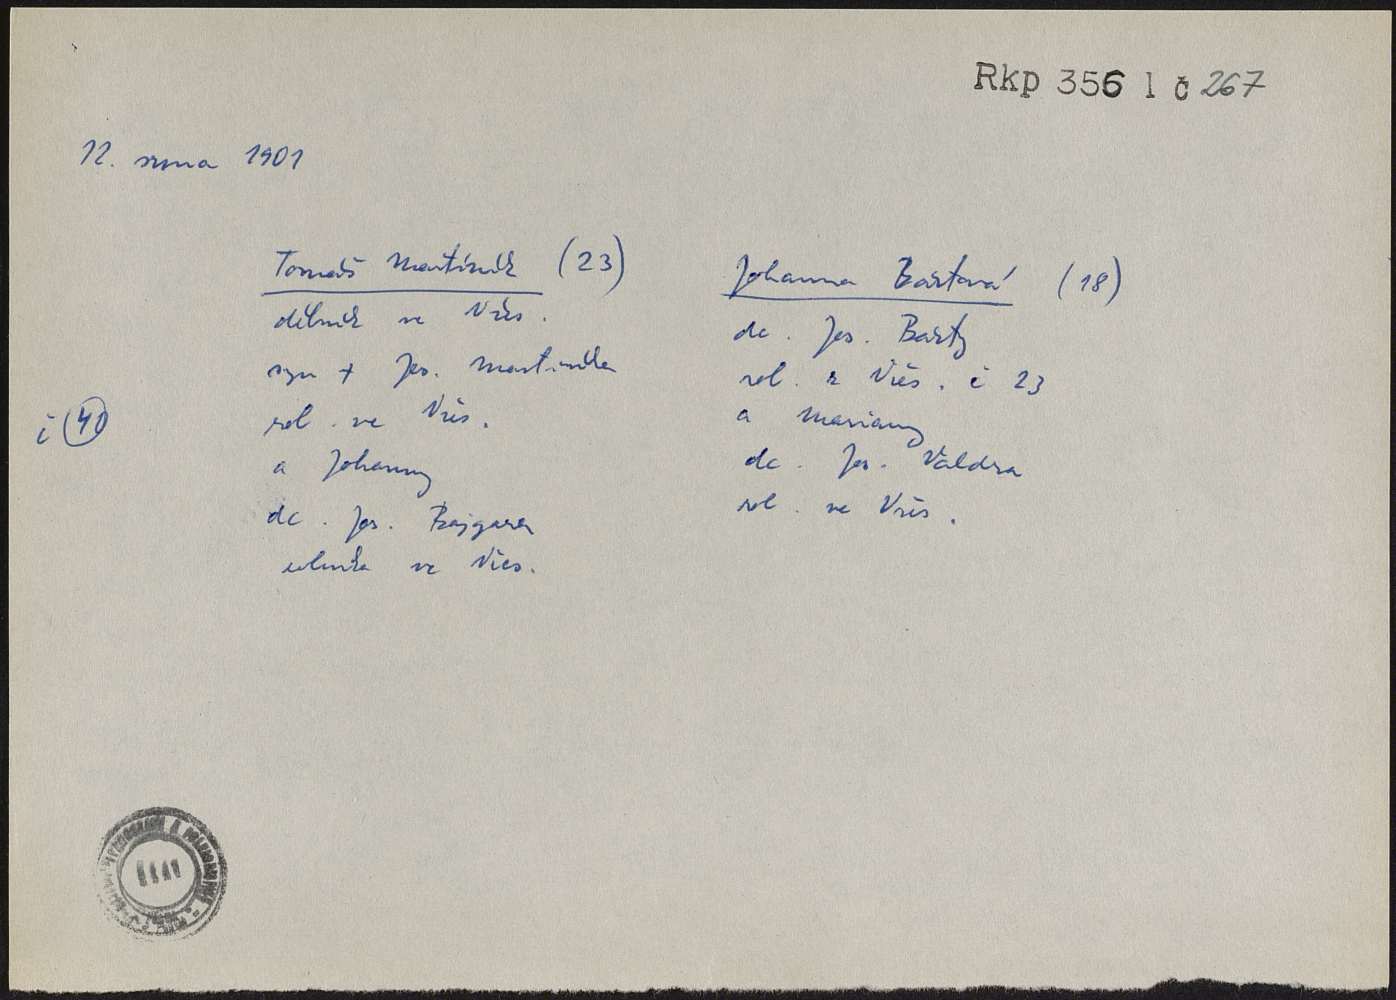 Rkp 356 l č 267
12. srpna 1901
Tomáš Martinik (23)
dělník ve Vřes.
syn + Jos. Martinika
rol. ve Vřes.
a Johanny
dc. Jos. Bajgara
ve Vřes.
č 40
Johanna Bartová (18)
dc. Jos. Barty
rol. z Vřes. č 23
a Mariany
dc. Jos. Valdra
rol. ve Vřes.